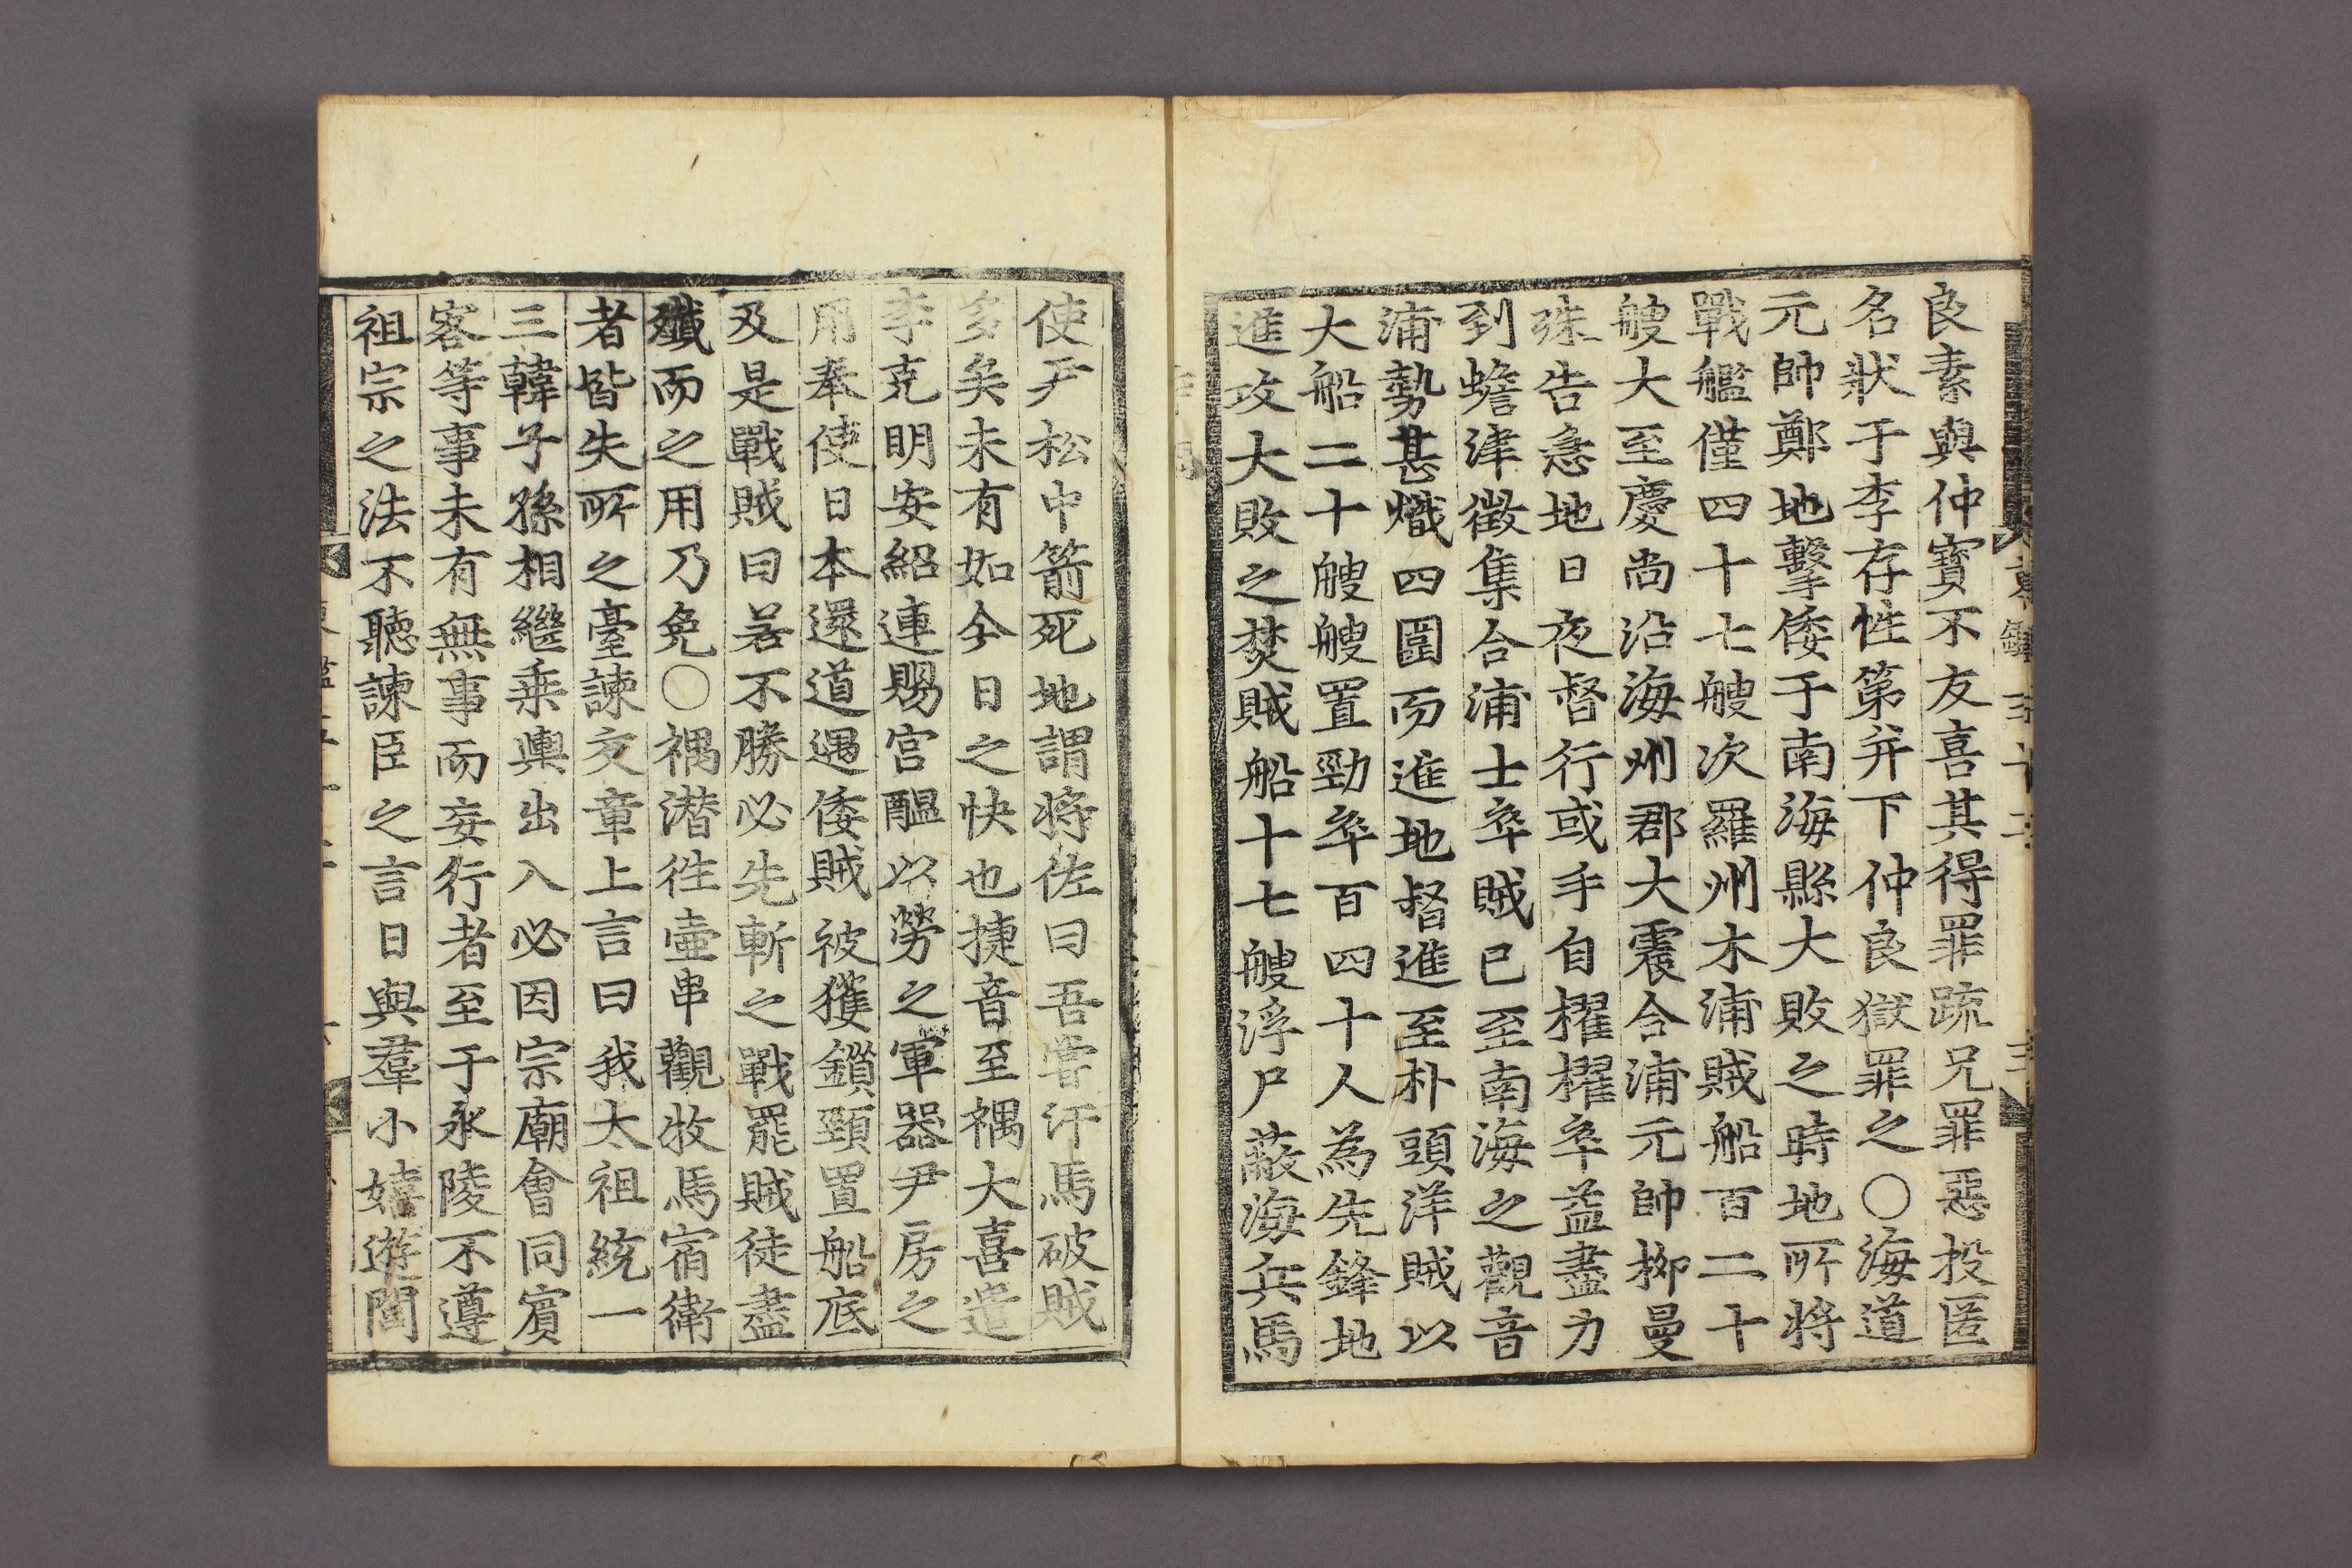 良素與仲寶不友喜其得罪疏兄罪惡投匿
名狀于李存性第并下仲良獄罪之○海道
元帥鄭地擊倭于南海縣大敗之時地所將
戰艦僅四十七艘次羅州木浦賊船百二十
艘大至慶尚沿海州郡大震合浦元帥柳曼
殊告急地日夜督行或手自櫂櫂卒益盡力
到蟾津徵集合浦士卒賊已至南海之觀音
浦勢甚熾四圍而進地督進至朴頭洋賊以
大船二十艘艘置勁卒百四十人為先鋒地
進攻大敗之焚賊船十七艘浮尸蔽海兵馬
使尹松中箭死地謂將佐曰吾嘗汗馬破賊
多矣未有如今日之快也捷音至禑大喜遣
李克明安紹連賜宮醞以勞之軍器尹房之
用奉使日本還道遇倭賊被獲鎖頸置船底
及是戰賊曰若不勝必先斬之戰罷賊徒盡
殲而之用乃免○禑潛往壺串觀牧馬宿衛
者皆失所之臺諫交章上言曰我太祖統一
三韓子孫相繼乗輿出入必因宗廟會同賓
客等事未有無事而妄行者至于永陵不遵
祖宗之法不聽諫臣之言日與羣小嬉遊閭